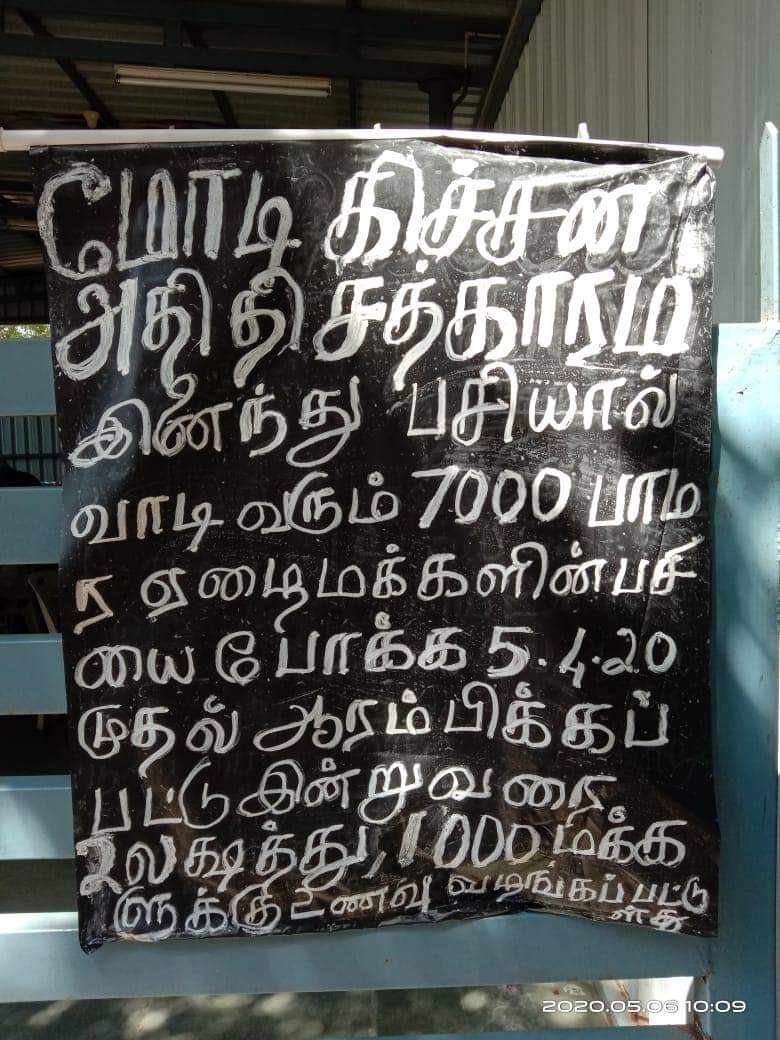 மோடி கிச்சன
அதிதி சத்காரம
இணைந்து பசியால்
வாடி வரும் 7000 பாம
ர ஏழைமக்களின்பசி
யை போக்க 5.4.20
முதல் ஆரம்பிக்கப்
பட்டு இன்றுவரை
2லக்ஷத்து,1000 மக்க
ளுக்கு உணவு வழங்கப்பட்டு
ள்து
2020.05.06 10:09